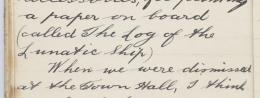 a paper on board
(called The Log of the
Lunatic Ship)
When we were dismissed
at the Town Hall, I think